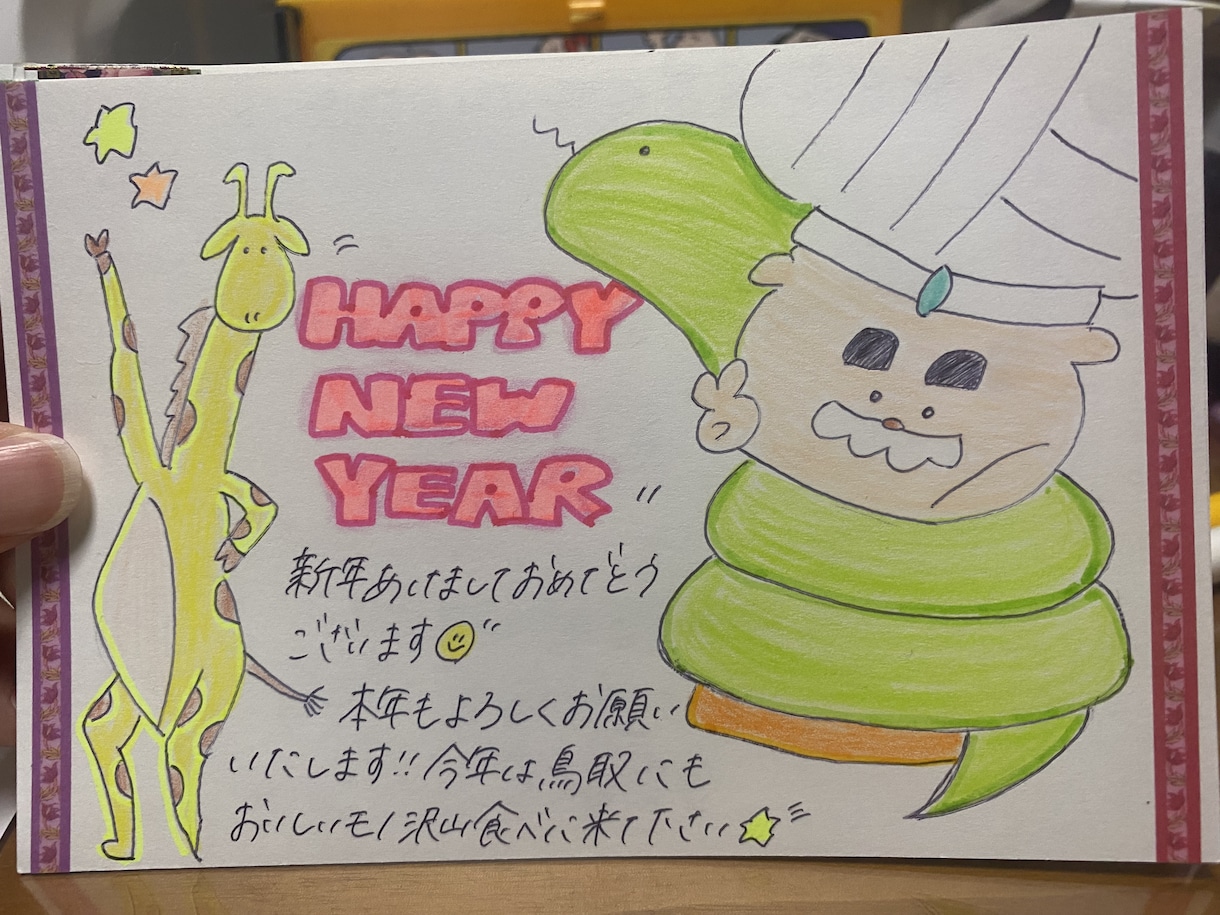 HAPPY
NEW
YEAR
新年あけましておめでとう
ございます
本年もよろしくお願い
いたします!! 今年は鳥取にも
おいしいモノ沢山食べに来て下さい